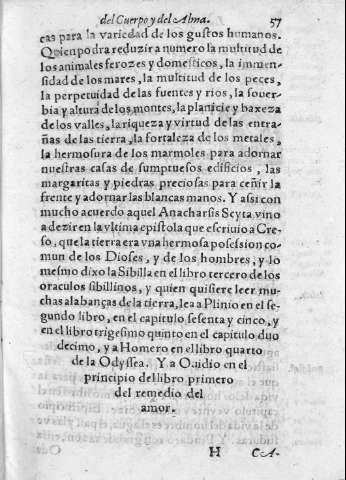 del Cuerpo y del Alma. 57
cas para la variedad de los gustos humanos.
Quien podra reduzir a numero la multitud de
los animales ferozes y domesticos, la immen-
sidad de los mares, la multitud de los peces,
la perpetuidad de las fuentes y rios, la sober-
bia y altura de los montes, la planicie y baxeza
de los valles, la riqueza y virtud de las entra-
ñas de las tierra, la fortaleza de los metales,
la hermosura de los marmoles para adornar
nuestras casas de sumptuosos edificios, las
margaritas y piedras preciosas para ceñir la
frente y adornar las blancas manos. Y assi con
mucho acuerdo aquel Anacharsis Scyta vino
a dezir en la vltima epistola que escriuio a Cre-
so, que la tierra era vna hermosa possession co-
mun de los Dioses, y de los hombres, y lo
mesmo dixo la Sibilla en el libro tercero de los
oraculos sibillinos, y quien quisiere leer mu-
chas alabanças de la tierra, lea a Plinio en el se-
gundo libro, en el capitulo sesenta y cinco, y
en el libro trigesimo quinto en el capitulo duo
decimo, y a Homero en el libro quarto
de la Odyssea. Y a Ouidio en el
principio del libro primero
del remedio del
amor.
H CA-